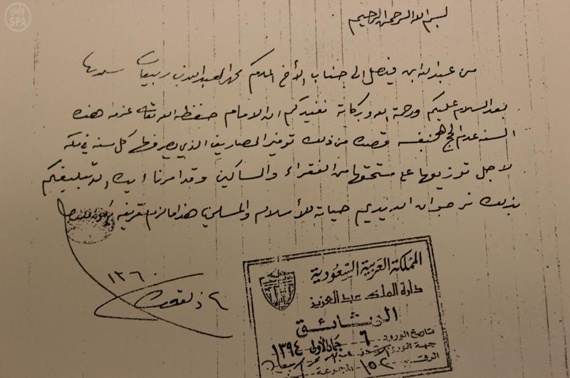 بسم الله الرحمن الرحيم
من عبدالله ابن فيصل الى جناب الأخ المكرم محمد العبدالله بن ربيعان سلمه الله
بعد السلام عليكم ورحمة الله وبركاته نفيدكم ان الامام حفظه الله تعالى عزم هذه
السنه عدم الحج قصده من ذلك توفير المصاريف الذي يصرفها كل سنه في مكة
لاجل توزيعها على مستحقها من الفقراء والمساكين وقد امرنا تبليغكم
بذلك نرجو ان الله يديم حياته للأسلام والمسلمين هذا مالزم تعريفه
٤ ذالقعدة ١٣٦٠
المملكة العربية السعودية
دارة الملك عبدالعزيز
الوثائق
تاريخ الورود ٦ جمادى الأولى ١٣٩٤
جهة الورود
الرقم ١٥٢ المجموعة
SPA